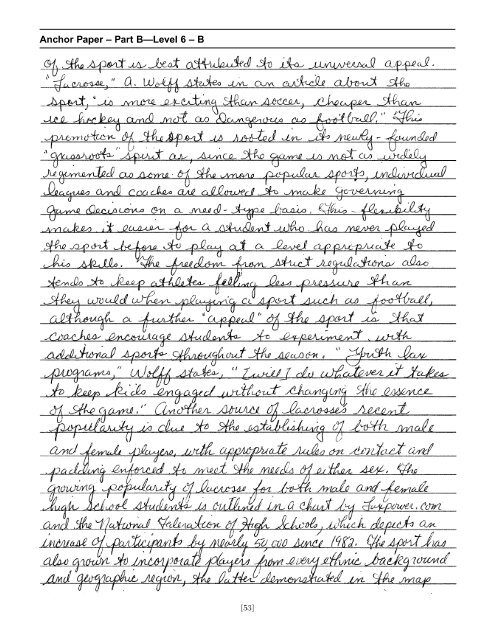 Anchor Paper – Part B—Level 6 – B
of the sport is best attributed to its universal appeal.
"Lacrosse," A. Wolff states in an article about the
sport, "is more exciting than soccer, cheaper than
ice hockey and not as dangerous as football." This
promotion of the sport is rooted in its newly-founded
"grassroots" spirit as, since the game is not as widely
regimented as some of the more popular sports, individual
leagues and coaches are allowed to make governing
game decisions on a need-type basis. This flexibility
makes it easier for a student who has never played
the sport before to play at a level appropriate to
his skills. The freedom from strict regulations also
tends to keep athletes feeling less pressure than
they would when playing a sport such as football,
although a further "appeal" of the sport is that
coaches encourage students to experiment with
additional sports throughout the season. "Youth lax
programs," Wolff states, "[will] do whatever it takes
to keep kids engaged without changing the essence
of the game." Another source of lacrosse's recent
popularity is due to the establishing of both male
and female players, with appropriate rules on contact and
padding enforced to meet the needs of either sex. The
growing popularity of lacrosse for both male and female
high school students is outlined in a chart by Laxpower.com
and the National Federation of High Schools, which depicts an
increase of participants by nearly 50,000 since 1982. The sport has
also grown to incorporate players from every ethnic background
and geographic region, the latter demonstrated in the map
[53]